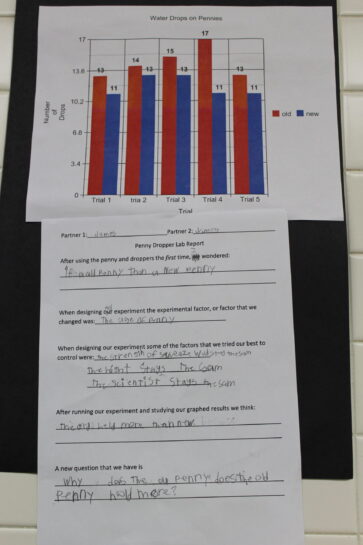 Water Drops on Pennies
17
13.6
10.2
6.8
3.4
0
Number
of
Drops
13
11
14
13
15
13
17
11
13
11
old
new
Trial 1
tria 2
Trial 3
Trial 4
Trial 5
Trial
Partner 1: James Partner 2:
Penny Dropper Lab Report
After using the penny and droppers the first time, wondered:
old Penny Than a New penny
When designing our experiment the experimental factor, or factor that we
changed was: The age of Penny
When designing our experiment some of the factors that we tried our best to
control were: the strength of squeeze
The hight Stays The Sam
The scientist Stays the sam
After running our experiment and studying our graphed results we think:
The old held more than new
A new question that we have is
Why does the old penny does the old
Penny hold more?